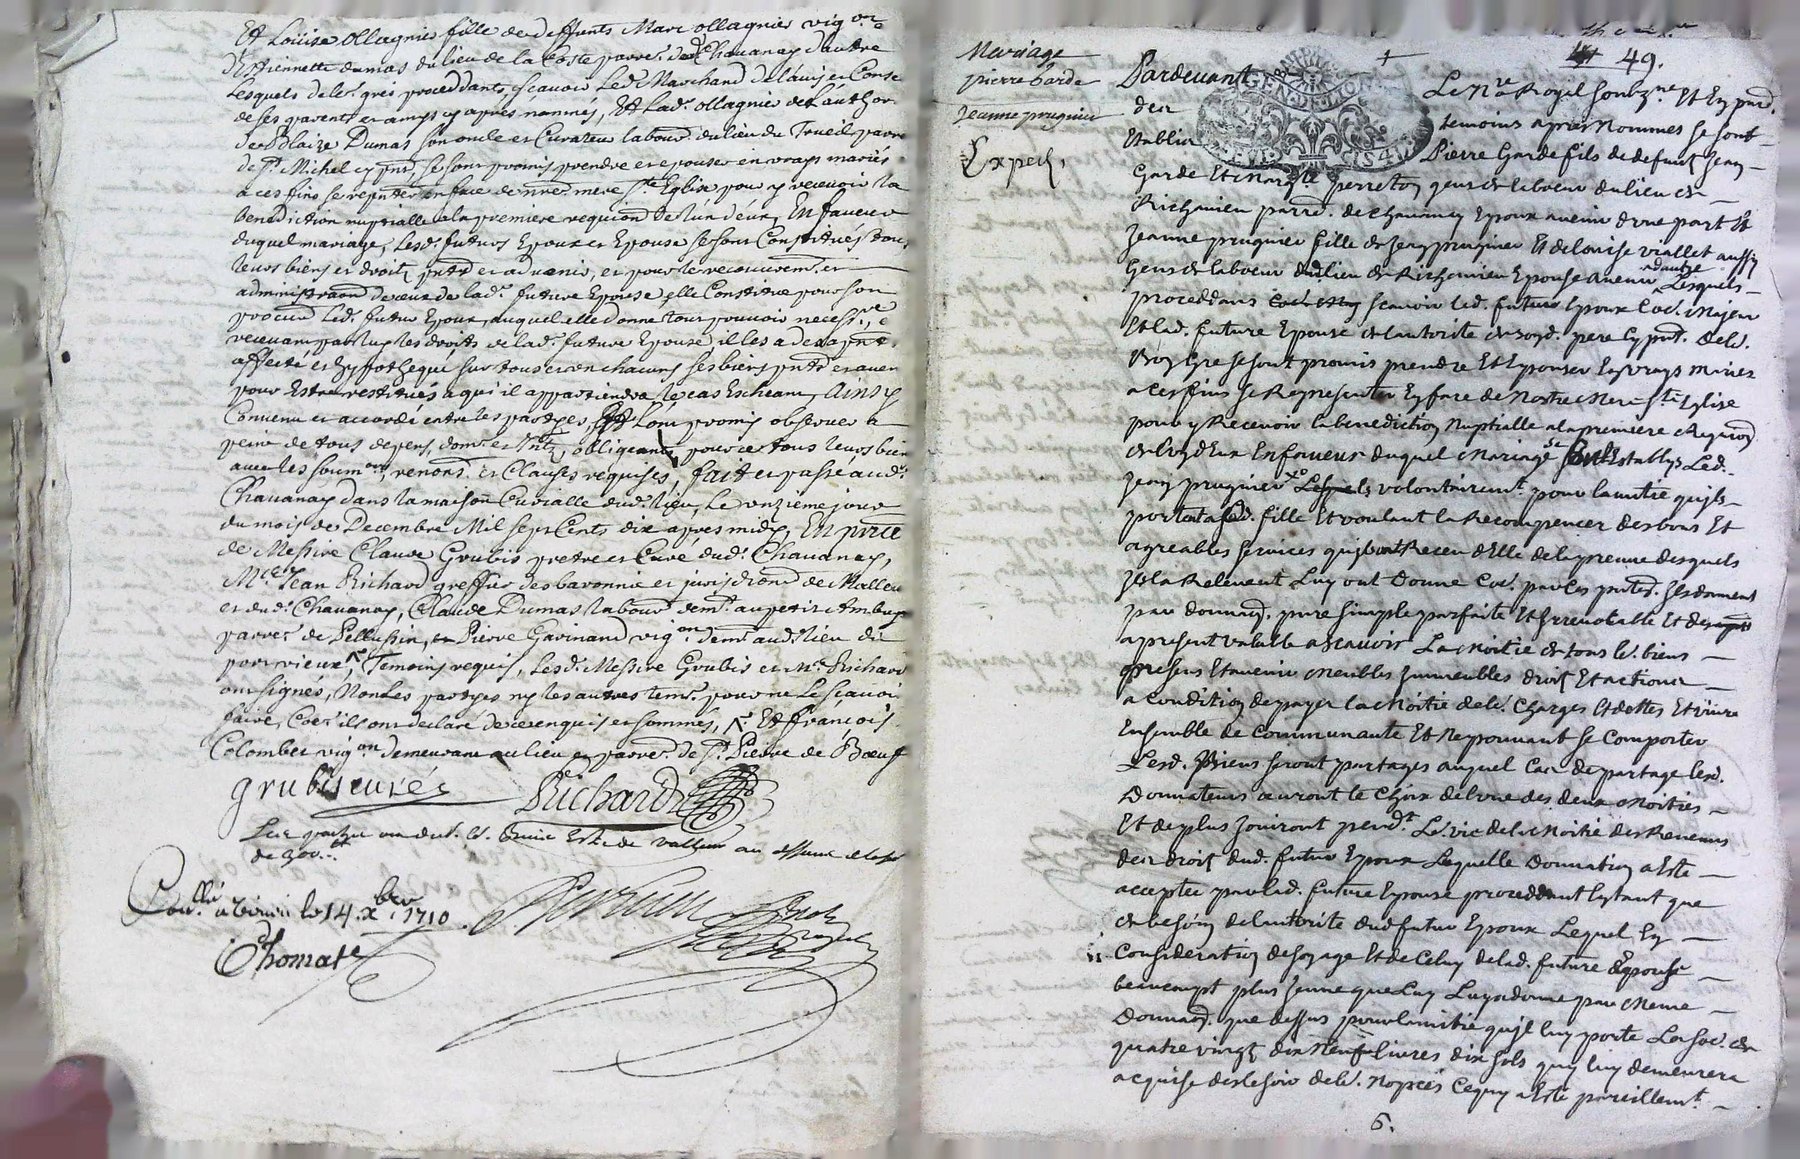 Et Loüise ollagnier fille de deffunts Marc ollagnier vig.on
d'Estiennette dumas du lieu de la Coste parr.e dud. Chauanay d'autre
Lesquels de le.rs grés proceddants, sçauoir Led. Marchand de l'auis et Conse
de ses parents et amys cy aprés nommés, Et Lad. ollagnier de L'author
de Blaize Dumas son oncle et Curateur labour. du lieu du Trueil parr.e
de S.t Michel cy pnt, se sont promis prendre et epouser en vrays mariés
a ces fins se repnter en face de nre mere S.te Eglise pour y receuoir la
benediction nuptialle a la premiere requion de l'un d'eux, En faueur
duquel mariage, Lesd. futurs Epoux et Epouse se sont Constitués tous
leurs biens et droits pnts et aduenir, et pour le recouurem. et
administraon de ceux de lad. future Epouse elle Constitue pour son
procur. Led. futur Epoux, auquel elle donne tout pouuoir necess.re
receuant par luy les droits de lad. future Epouse il les a des apnt
affecté et hypothequé sur tous et un chacuns ses biens pnts et auen
pour Estre restitués a qu'il appartiendra le cas Escheant, Ainsy
Conuenu et accordé entre les partyes, Et L'ont promis obseruer a
peine de tous depens, dom. et Intz, obligeants pour ce tous leurs bien
auec les soum.ons, renons. et Clauses requises, fait et passé aud.
Chauanay dans la maison Curialle dud. lieu, Le unzieme jour
du mois de Decembre Mil sept Cents dix apres midy, En pnce
de Messire Claude Grubis pretre et Curé dud. Chauanay,
M.re Jean Richard greffier des baronnie et jurisdiond de Malleu
et dud. Chauanay, Claude Dumas labour. dem.t au petit Ambuy
parr.e de Pellussin, et Pierre Gavinand vig.on dem.t aud. lieu de
Temoins requis, Lesd. Messire Grubis et M.re Richard
ont signés, Non Les partyes ny les autres tem. pour ne Le sçauoir
faire, Co.e ils ont declaré de ce enquis et sommés, Et françois
Colombet vig.on demeurant au lieu et parr.e de S.t Pierre de Bœuf
grubis curé
Richard
de 300.lt
Con.llé a le 14 xbre 1710
Thomas
49.
Mariage
pierre garde
Jeanne pruginier
Exped.
GEN. DE MON
Pardeuant Le N.re Royal soubz.né Et En pnd.
des temoins apres Nommes se sont
Etablis Pierre Garde fils de defunt Jean
Garde Et Marg.te perreton gens de labeur du lieu de
Richanieu parr.e de Chauanay Epoux auenir d'une part Et
Jeanne pruginier fille de Jean pruginier Et de Louise viallet aussy
Gens de labeur dud. lieu de Richanieu Epouse auenir d'autre Lesquels
proceddans sçauoir led. futur Epoux co.e Majeur
Et lad. future Epouse de lautorité de sond. pere Cy pnt. de le.
bon gré se sont promis prendre Et Epouser En vrays mariez
a ces fins se Representer En face de Nostre Mere S.te Eglise
pour y Receuoir la benediction Nuptialle a la premiere Requion
de l'un d'Eux En faueur duquel Mariage Establys Led.
Jean pruginier volontairem.t pour lamitié quils
portent a lad. fille Et voulant la Recompencer des bons Et
agreables seruices quils ont Receu d'Elle de la preuue desquels
Ils la Releuent Luy ont Donné Co.e par Ces pntes Ils donnent
par donnaon. pure simple parfaite Et Irreuocable Et des
apresent valable a scauoir La Moitié de tous le. biens
presens Et auenir meubles Immeubles droits Et actions
a Condition de payer la Moitié de le. Charges Et dettes Et viure
Ensemble de Communauté Et Ne pouuant se Comporter
Lesd. Biens seront partages auquel Cas de partage lesd.
Donnateurs auront le Choix de lune des deux Moities
Et de plus Jouiront pend.t Le. vie de la Moitié des Reuenus
des droits dud. futur Epoux Laquelle Donnation a Esté
acceptée par lad. future Epouse proceddant Entant que
de besoin de lautorité dud. futur Epoux Lequel En
Consideration de son age Et de Celuy de lad. future Epouse
beaucoupt plus Jeune que Luy Luy a donné par Mesme
Donnaon. que dessus pour lamitié quil luy porte La So.e de
quatre vingt dix Neuf liures dix sols quy luy demeurera
acquise des le soir de le. Nopces Ce quy a Esté pareillem.t
6.